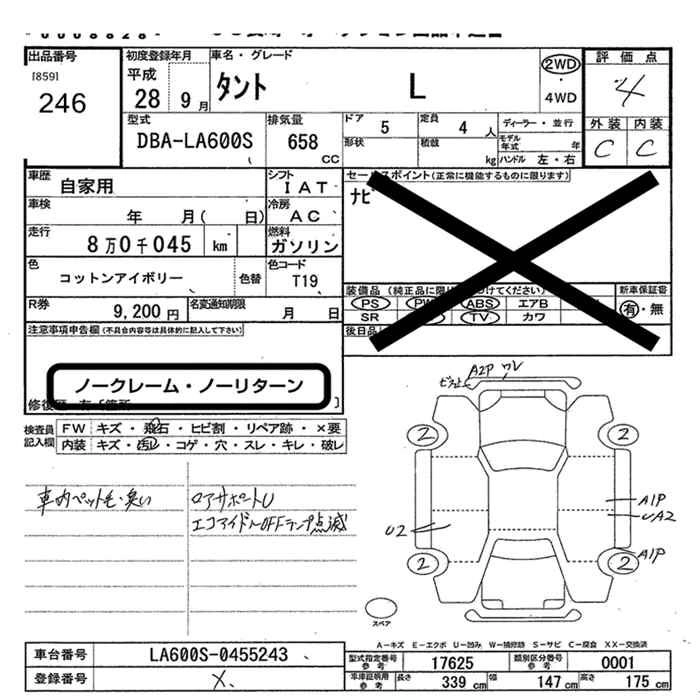 出品番号
[859]
246
初度登録年月
平成
28 9月
車名・グレード
タント L
2WD
・
4WD
評価点
4
外装 内装
C C
型式
DBA-LA600S
排気量
658
CC
ドア 5
定員 4 人
ディーラー・並行
形状
積載 kg
モデル年式 年
ハンドル 左・右
車歴 自家用
シフト IAT
車検 年 月( 日)
冷房 AC
走行 8万0千045 km
燃料 ガソリン
色 コットンアイボリー 色替
色コード T19
R券 9,200円
名変通知期限 月 日
セールスポイント(正常に機能するものに限ります)
ナビ
装備品 (純正品に限り
けてください)
新車保証書
PS PW ABS エアB
有・無
SR TV カワ
後日品
注意事項申告欄(不具合内容等は具体的に記入して下さい)
ノークレーム・ノーリターン
検査員記入欄
FW キズ・飛石・ヒビ割・リペア跡・×要
内装 キズ・汚レ・コゲ・穴・スレ・キレ・破レ
車内ペット毛・臭い
ロアサポートU
エコアイドルOFFランプ点滅
A2P ワレ
2 2
A1P
UA2
U2
A1P
2 2
スペア
A-キズ E-エクボ U-凹み W-補修跡 S-サビ C-腐食 XX-交換済
車台番号 LA600S-0455243
登録番号 X
型式指定番号参考 17625
類別区分番号参考 0001
車庫証明用参考 長さ 339 cm 幅 147 cm 高さ 175 cm